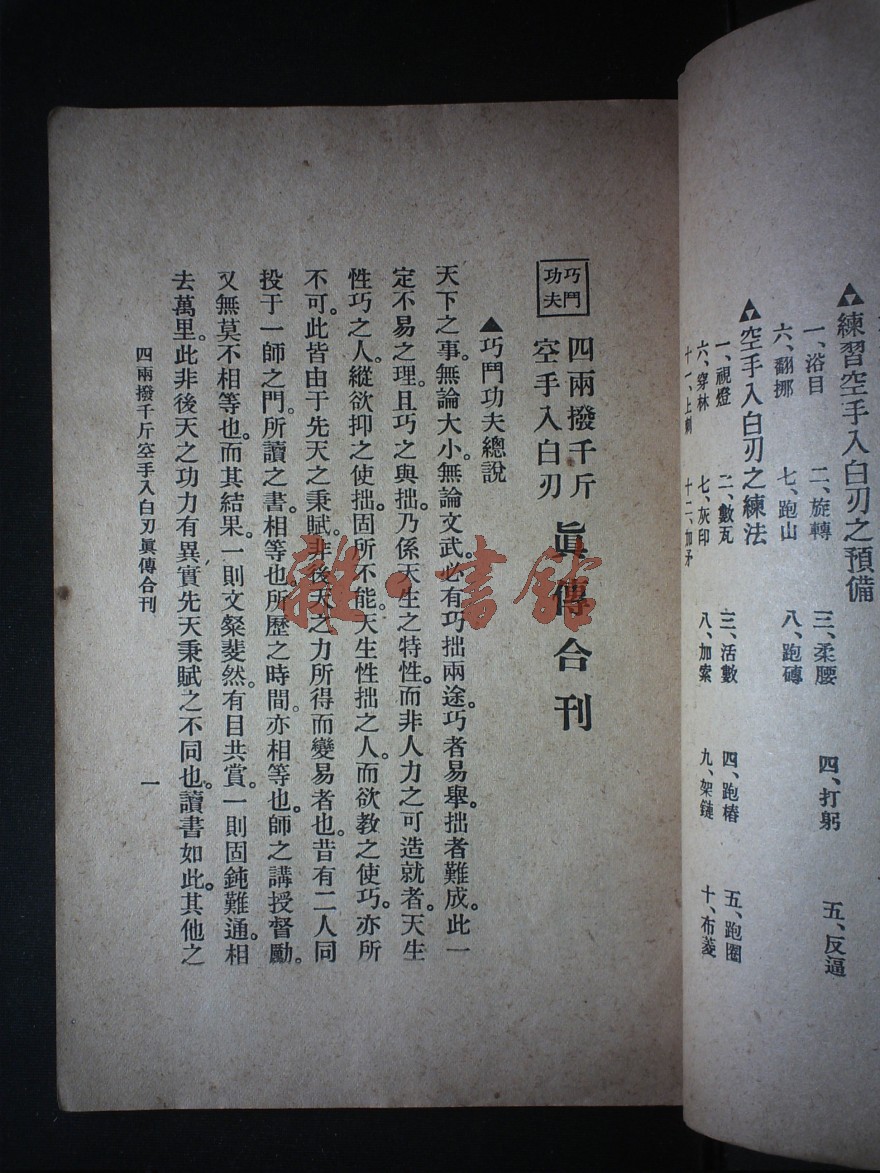 ▲練習空手入白刃之預備
一、浴目　二、旋轉　三、柔腰　四、打躬　五、反逼
六、翻挪　七、跑山　八、跑磚
▲空手入白刃之練法
一、視燈　二、數瓦　三、活數　四、跑樁　五、跑圈
六、穿林　七、灰印　八、加索　九、架鏈　十、布菱
十一、上刺　十二、加矛
巧門功夫
四兩撥千斤
空手入白刃
眞傳合刊
▲巧鬥功夫總說
天下之事。無論大小。無論文武。必有巧拙兩途。巧者易舉。拙者難成。此一
定不易之理。且巧之與拙。乃係天生之特性。而非人力之可造就者。天生
性巧之人。縱欲抑之使拙。固所不能。天生性拙之人。而欲教之使巧。亦所
不可。此皆由于先天之秉賦。非後天之力所得而變易者也。昔有二人同
投于一師之門。所讀之書。相等也。所歷之時間。亦相等也。師之講授督勵。
又無莫不相等也。而其結果。一則文粲斐然。有目共賞。一則固鈍難通。相
去萬里。此非後天之功力有異。實先天秉賦之不同也。讀書如此。其他之
四兩撥千斤空手入白刃眞傳合刊
一
雜·書館